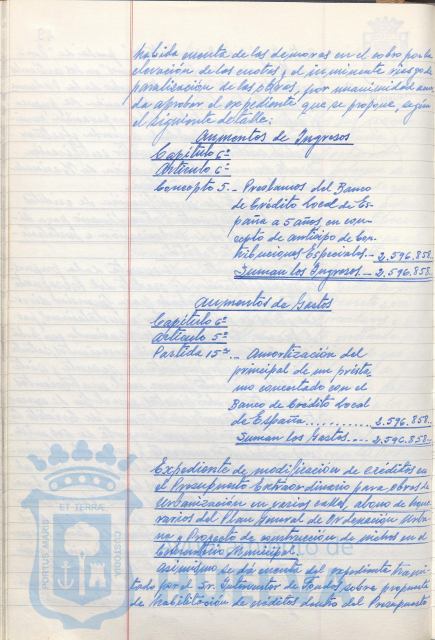 habida cuenta de las demoras en el cobro por la
elevación de las cuotas y el inminente riesgo de
paralización de las obras, por unanimidad acuer-
da aprobar el expediente que se propone, según
el siguiente detalle:
Aumentos de Ingresos
Capítulo 6º
Artículo 6º
Concepto 5.- Prestamos del Banco
de Crédito Local de Es-
paña a 5 años en con-
cepto de anticipo de Con-
tribuciones Especiales.- 2.596.858.
Suman los Ingresos.- 2.596.858.
Aumentos de Gastos
Capítulo 6º
Artículo 5º
Partida 15ª.- Amortización del
principal de un présta-
mo concertado con el
Banco de Crédito Local
de España........... 2.596.858.
Suman los Gastos.... 2.596.858.
Expediente de modificación de créditos en
el Presupuesto Extraordinario para obras de
Urbanización en varias calles, abono de hono-
rarios del Plan General de Ordenación Urba-
na y Proyecto de construcción de nichos en el
Cementerio Municipal.
Asimismo se da cuenta del expediente trami-
tado por el Sr. Interventor de Fondos sobre propuesta
de habilitación de créditos dentro del Presupuesto
PORTUS MARIS ET TERRÆ CUSTODIA